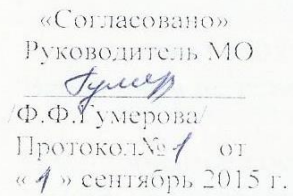 «Согласовано»
Руководитель МО
Гумер
/Ф.Ф.Гумерова/
Протокол№ 1 от
« 1 » сентябрь 2015 г.